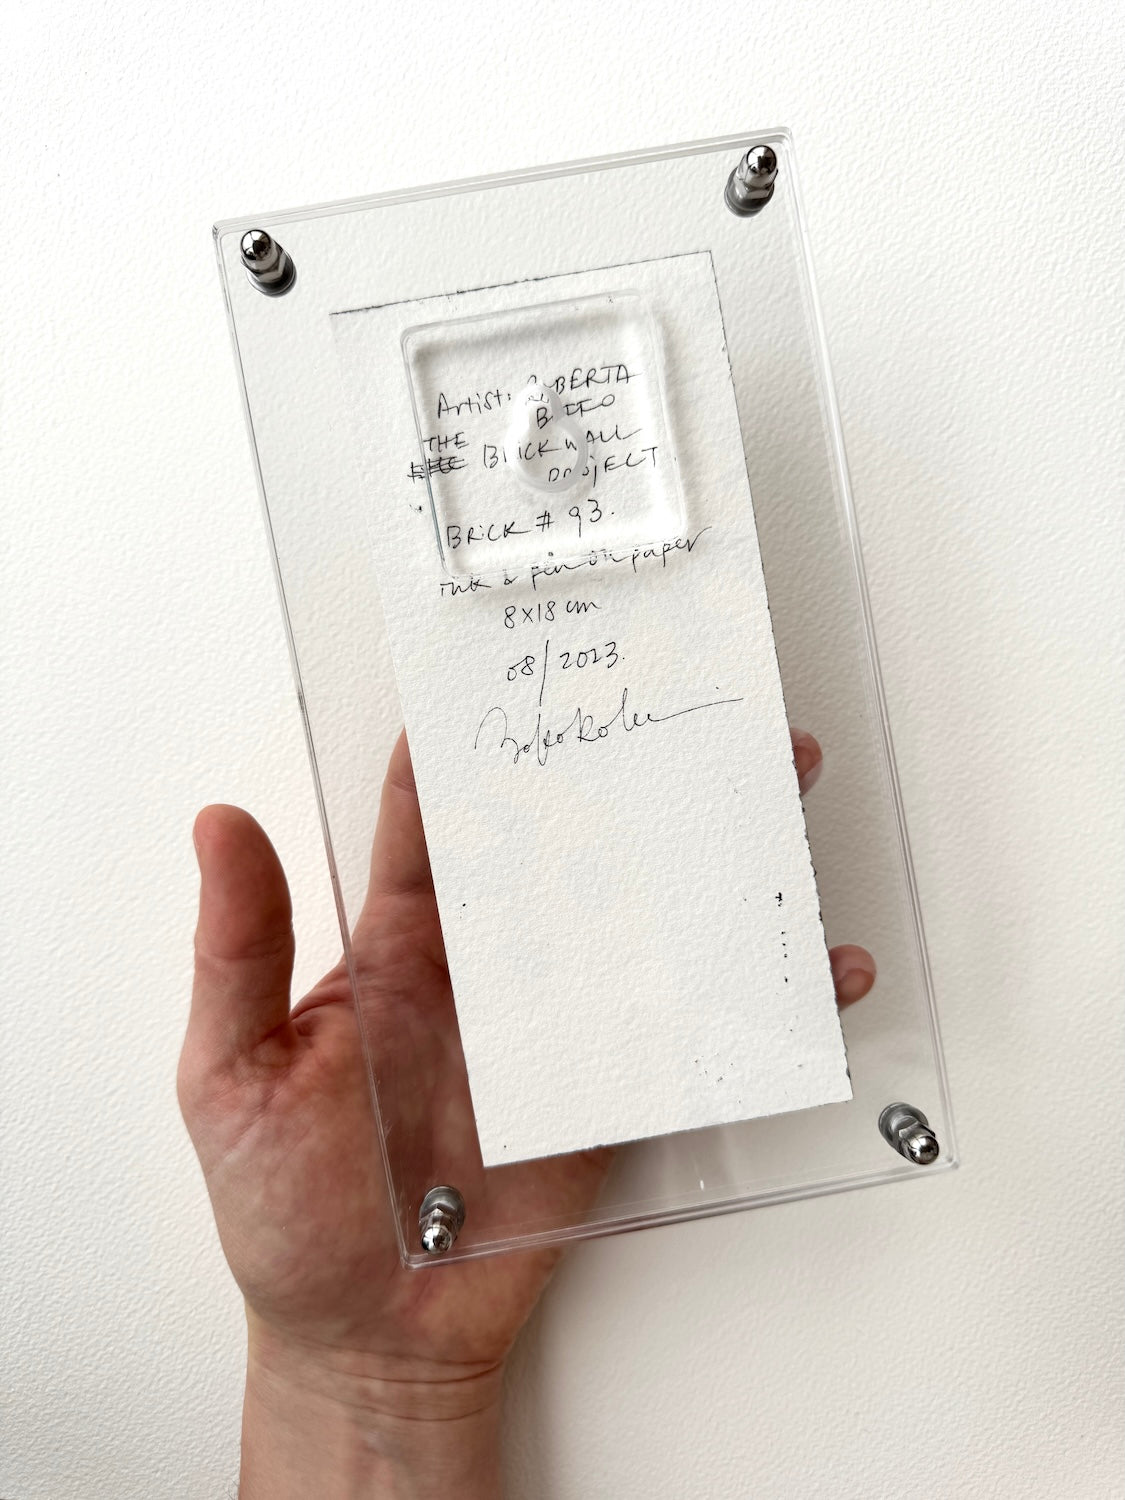 Artist: ROBERTA
BOTTO
THE
BRICK WALL
PROJECT
BRICK # 93.
ink & pen on paper
8x18 cm
08/2023.